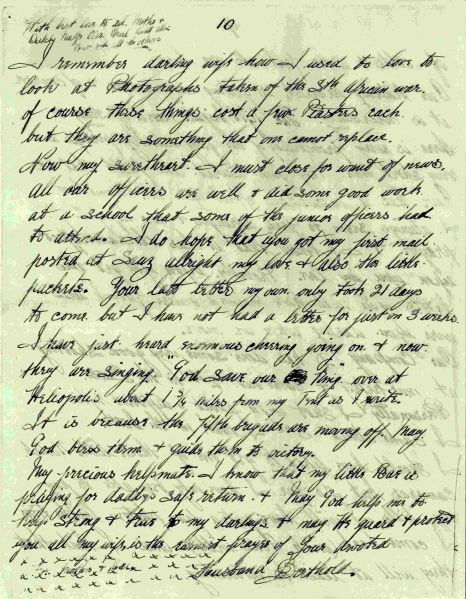 With best love to all. Mother &
10
I remember darling wife how I used to love to
look at Photographs taken of the Sth African war.
of course these things cost a few Piastres each.
but they are something that one cannot replace.
Now my sweetheart. I must close for want of news.
All our officers are well & did some good work
at a school that some of the junior officers had
to attend. I do hope that you got my first mail
posted at Suez allright my love & also the little
packets. Your last letter my own only took 21 days
to come but I have not had a letter for just on 3 weeks.
I have just heard enormous cheering going on & now
they are singing. "God save our King" over at
Heliopolis about 1 3/4 miles from my Tent as I write
It is because the fifth brigade are moving off. May
God bless them & guide them to victory.
My precious helpmate. I know that my little Bae is
praying for daddy's safe return. & May God help me to
keep strong & true to my darlings & may He guard & protect
you all my wife is the earnest prayer of Your devoted
Husband Berthold.
x x x x x x x x x x